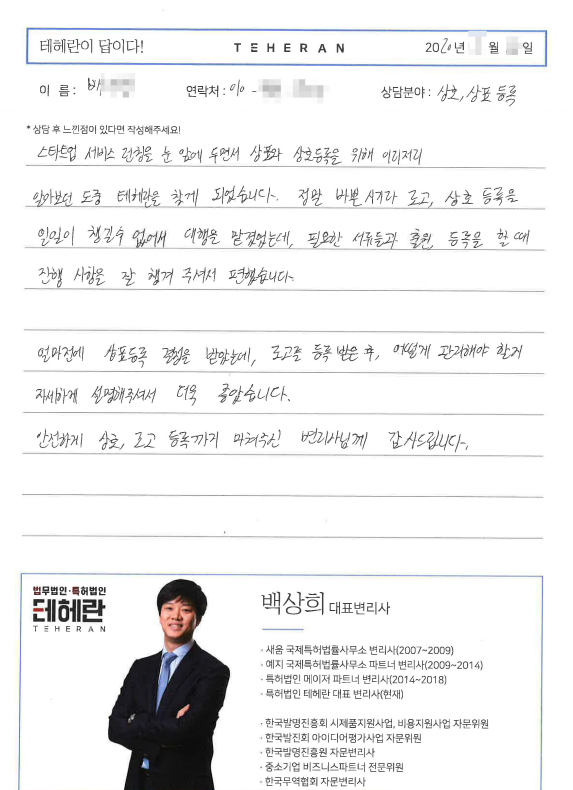 테헤란이 답이다!
TEHERAN
2020년 월 일
이 름 :
연락처 : 010 -
상담분야 : 상호, 상표 등록
* 상담 후 느낀점이 있다면 작성해주세요!
스타트업 서비스 런칭을 눈 앞에 두면서 상표와 상호등록을 위해 이리저리
알아보던 도중 테헤란을 찾게 되었습니다. 정말 바쁜 시기라 로고, 상호 등록을
일일이 챙길수 없어서 대행을 맡겼었는데, 필요한 서류들과 출원 등록을 할 때
진행 사항을 잘 챙겨 주셔서 편했습니다.
얼마전에 상표등록 결정을 받았는데, 로고를 등록 받은 후, 어떻게 관리해야 할지
자세하게 설명해주셔서 더욱 좋았습니다.
안전하게 상호, 로고 등록까지 마쳐주신 변리사님께 감사드립니다.
법무법인·특허법인
테헤란
TEHERAN
백상희 대표변리사
· 새움 국제특허법률사무소 변리사(2007~2009)
· 예지 국제특허법률사무소 파트너 변리사(2009~2014)
· 특허법인 메이저 파트너 변리사(2014~2018)
· 특허법인 테헤란 대표 변리사(현재)
· 한국발명진흥회 시제품지원사업, 비용지원사업 자문위원
· 한국발진회 아이디어평가사업 자문위원
· 한국발명진흥원 자문변리사
· 중소기업 비즈니스파트너 전문위원
· 한국무역협회 자문변리사